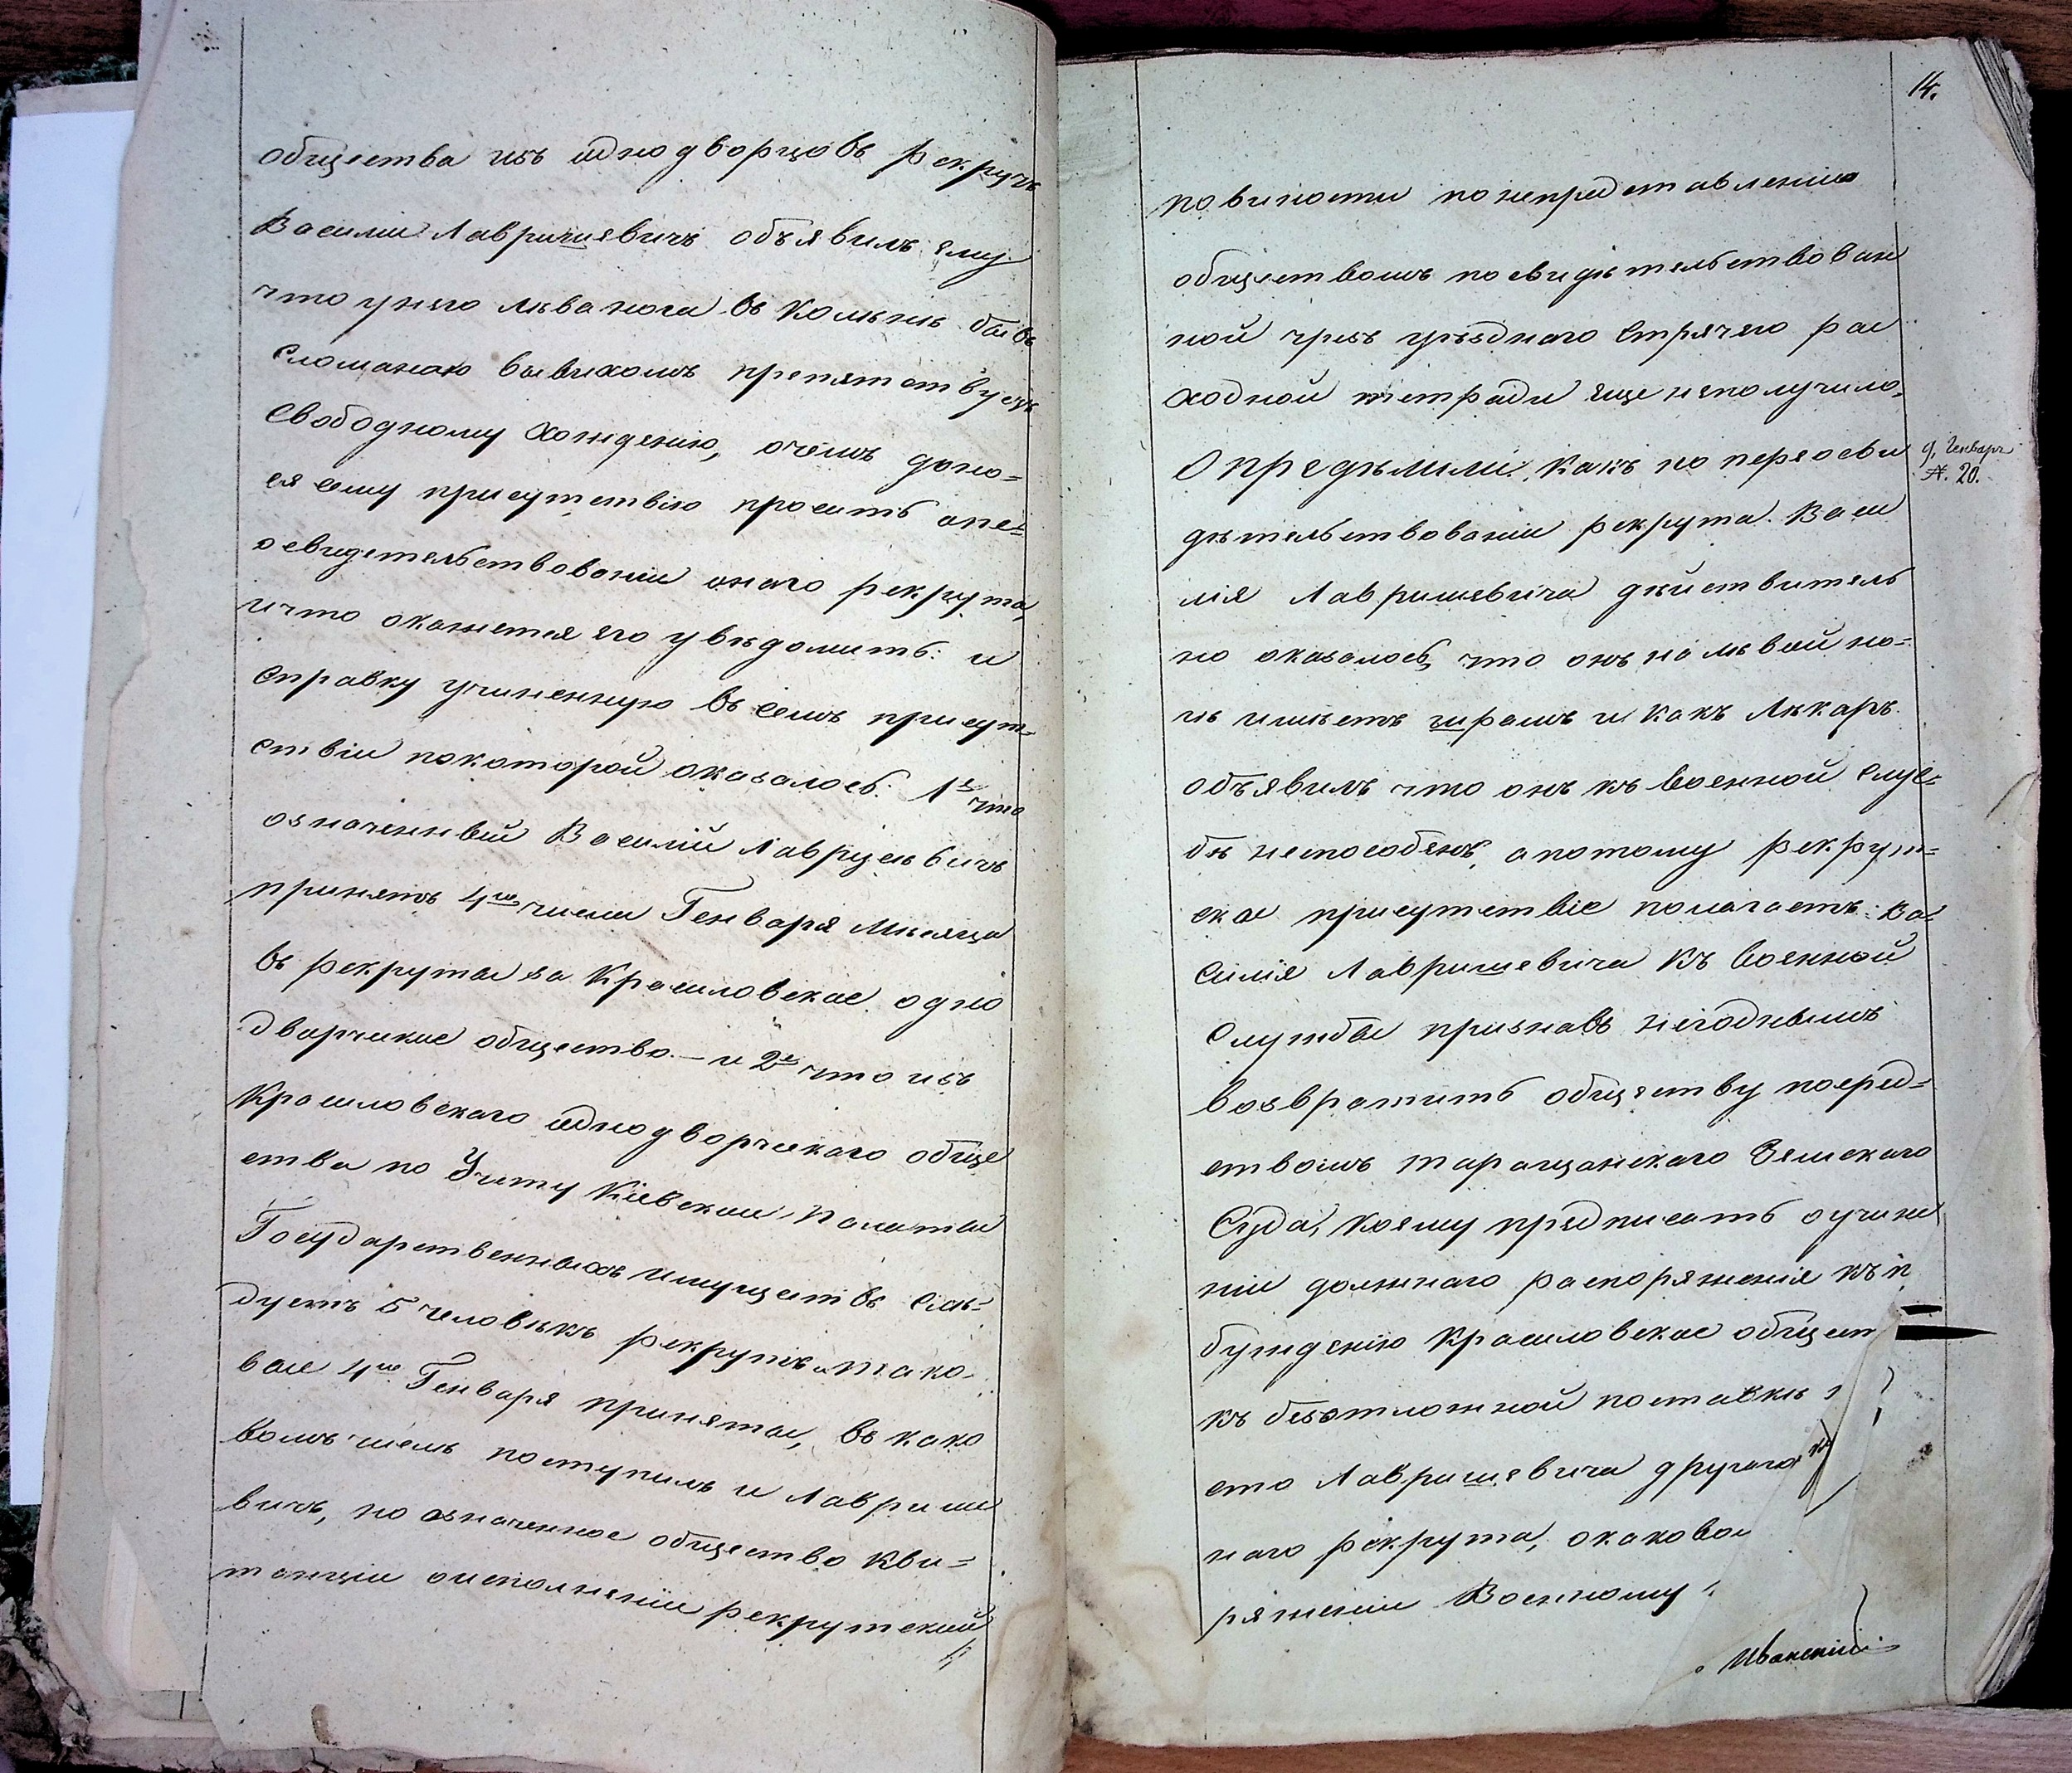 общества изъ однодворцовъ рекрутъ
Василій Лавришевичъ объявилъ ему
что унего лѣва нога въ колѣнѣ бывъ
сломаною вывихомъ препятствуетъ
свободному хожденію, очемъ доно=
ся сему присутствію проситъ опе=
освидетельствованіи онаго рекрута,
ичто окажется его увѣдомить: и
справку учиненную въ семъ присут=
ствіи покоторой оказалось: 1е что
означенный Василій Лаврушевичъ
принятъ 4го числа Генваря мѣсяца
въ рекруты за Красиловское одно
дворческое общество. — и 2е что изъ
Красиловскаго однодворческаго обще
ства по Учету Кіевской Палаты
Государственныхъ имуществъ слѣ=
дуетъ 5 человѣкъ рекрутъ и тако=
вые 4го Генваря приняты, въ како
вомъ числѣ поступилъ и Лаврише
вичъ, но означенное общество кви=
танціи оисполненіи рекрутской
14.
повиности понепредставленію
обществомъ посвидѣтельствован
ной чрезъ уѣзднаго Стряпчего рас
ходной тетради еще неполучило.
Опредѣлили: какъ по переосви
дѣтельствованіи рекрута Васи
лія Лавришевича дѣйствитель
но оказалось, что онъ на лѣвой но=
гѣ имѣетъ шрамъ и какъ Лѣкарь
объявилъ что онъ къ военной служ=
бѣ неспособенъ, апотому рекрут=
ское присутствіе полагаетъ: Ва=
силія Лавришевича къ военной
службы признавъ негоднымъ
возвратить обществу посред=
ствомъ таращанскаго Земскаго
Суда, коему предписать оучине
ніи должнаго распоряженія къ п
бужденію Красиловское общест
къ безотложной поставкѣ
сто Лавришевича другаго
наго рекрута, окаковом
ряженіи Военному
Иванскій
9. Генваря
№. 20.